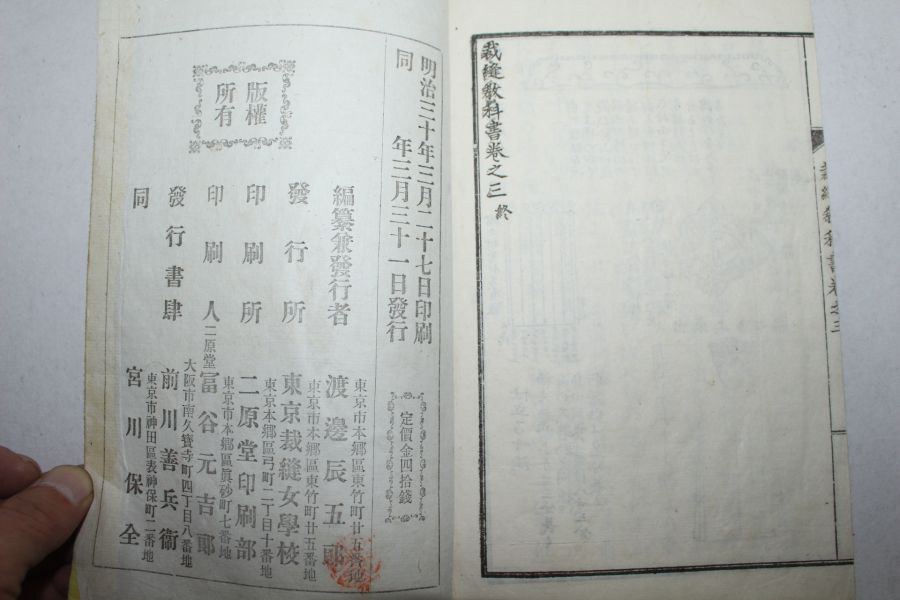 裁縫教科書卷之三 終
明治三十年三月二十七日印刷
同 年三月三十一日發行
定價金四拾錢
版權
所有
東京市本鄉區東竹町廿五番地
編纂兼發行者 渡邊辰五郎
東京市本鄉區東竹町廿五番地
發行所 東京裁縫女學校
東京本鄉區弓町二丁目十番地
印刷所 二原堂印刷部
東京市本鄉區眞砂町七番地
印刷人 二原堂 富谷元吉郎
大阪市南久寶寺町四丁目八番地
發行書肆 前川善兵衞
東京市神田區表神保町二番地
同 宮川保全